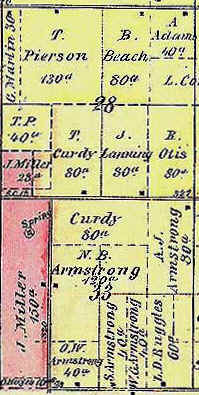 G. Martin 30ᵃ
T.
Pierson
130a
B.
Beach
80a
A
Adams
40a
L. Co
28
T.P.
40a
J. Miller
28a
T.
Curdy
80a
J.
Lanning
80a
E.
Otis
80a
327
Spring
J. Miller
150a
320
Curdy
80a
N.B.
Armstrong
120a
33
A.J.
Armstrong
80a
O.W.
Armstrong
40a
Armstrong
40a
W.G. Armstrong
40a
A.D. Ruggles
60a